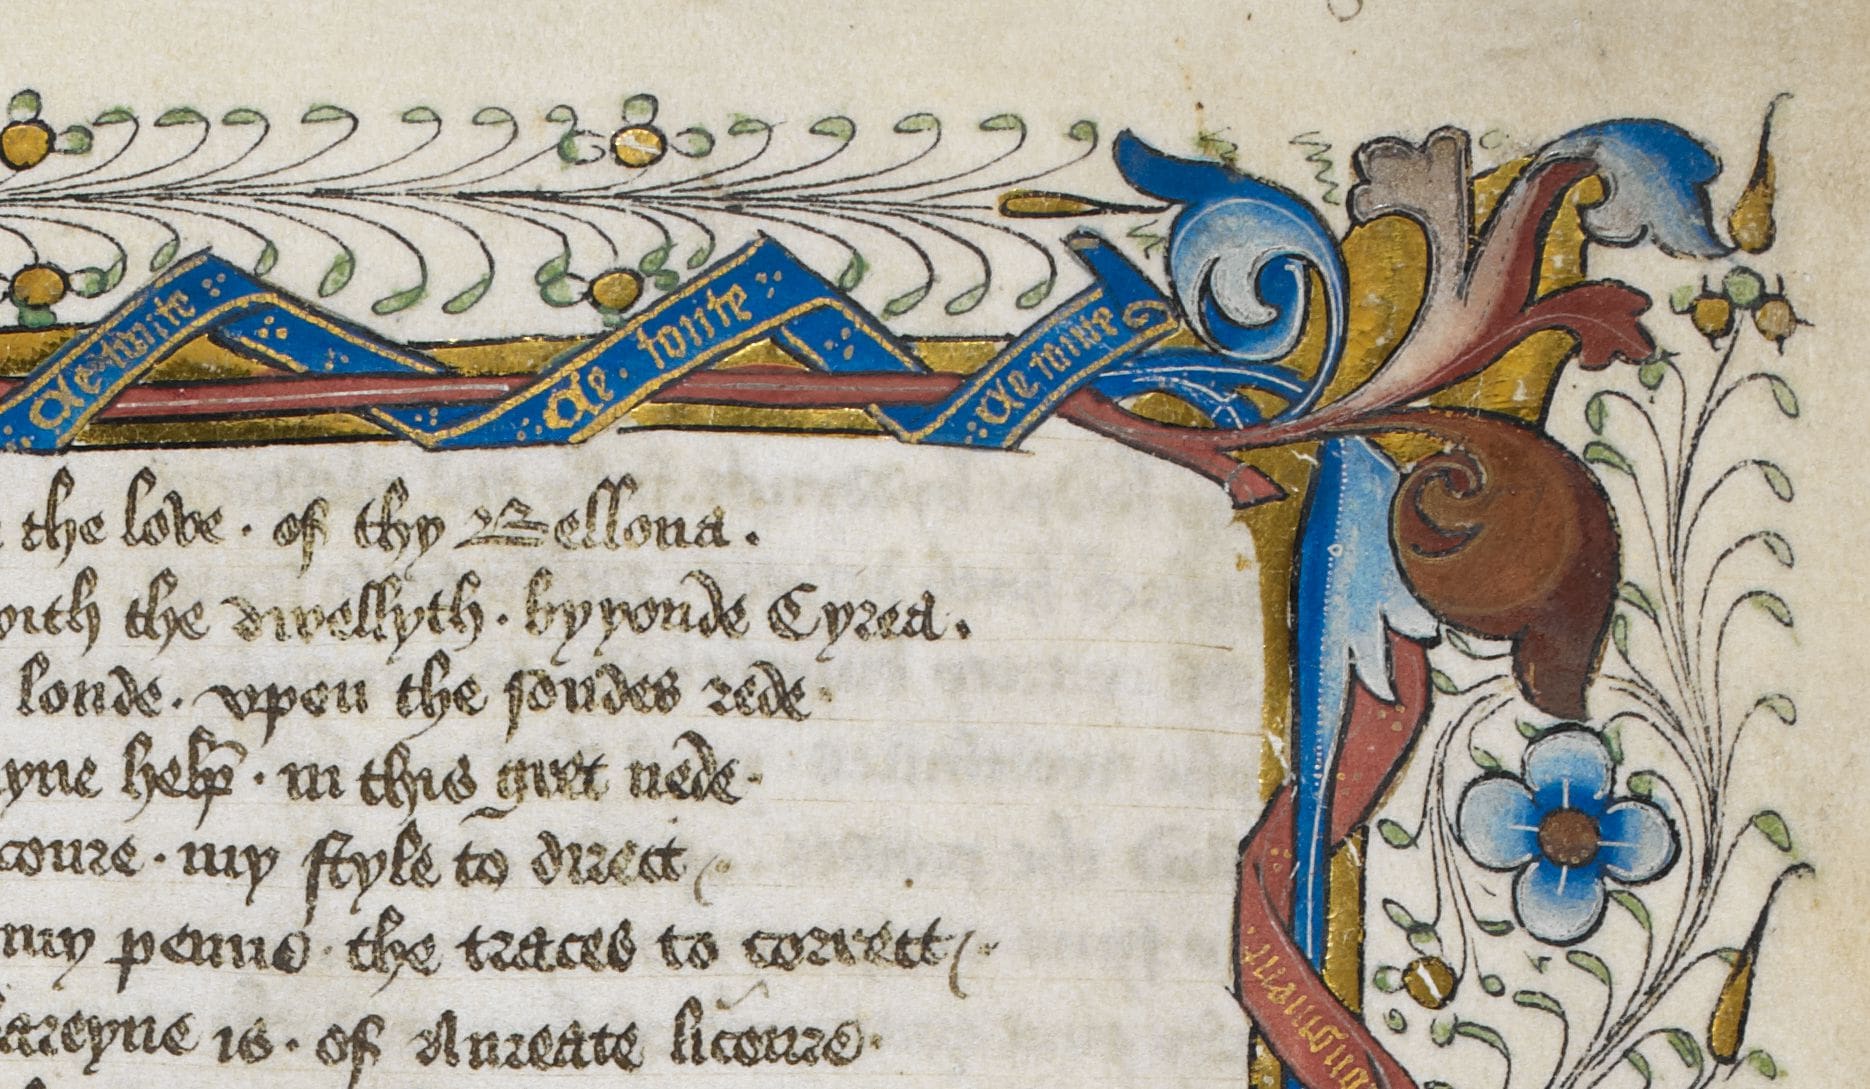 de toute de toute de toute
the love · of thy Bellona .
with the dwellyth · by yonde Cyrea .
londe · vpon the sondes rede ·
help · in this gret nede ·
my style to direct
my penne · the traces to correct
bareyne is · of Aureate licoure ·